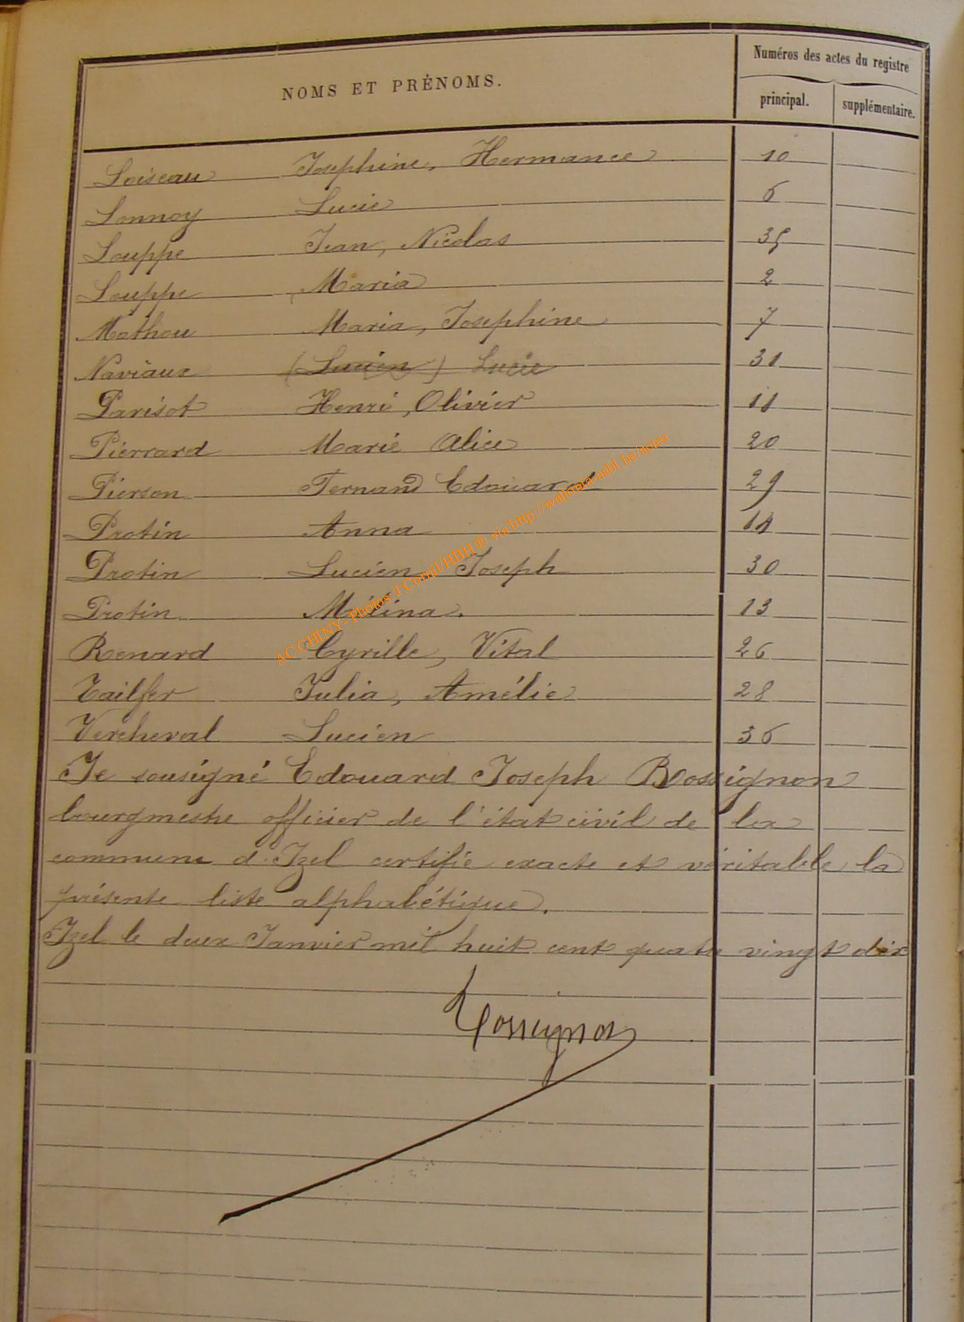 NOMS ET PRÉNOMS.
Numéros des actes du registre
principal.
supplémentaire.
Loiseau Josephine, Hermance 10
Lannoy Lucie 6
Louppe Jean, Nicolas 35
Louppe Maria 2
Mathou Maria, Josephine 7
Naviaux (Lucien) Lucie 31
Parisot Henri, Olivier 11
Piérrard Marie Alice 20
Pierson Fernand Edouard 29
Protin Anna 14
Protin Lucien, Joseph 30
Protin Mélina. 13
Renard Cyrille, Vital 26
Tailfer Julia, Amélie 28
Vercheval Lucien 36
Je sousigné Edouard Joseph Rossignon
bourgmestre officier de l'état civil de la
commune d'Izel certifie exacte et véritable la
présente liste alphabétique.
Izel le deux Janvier mil huit cent quatre vingt dix
Rossignon